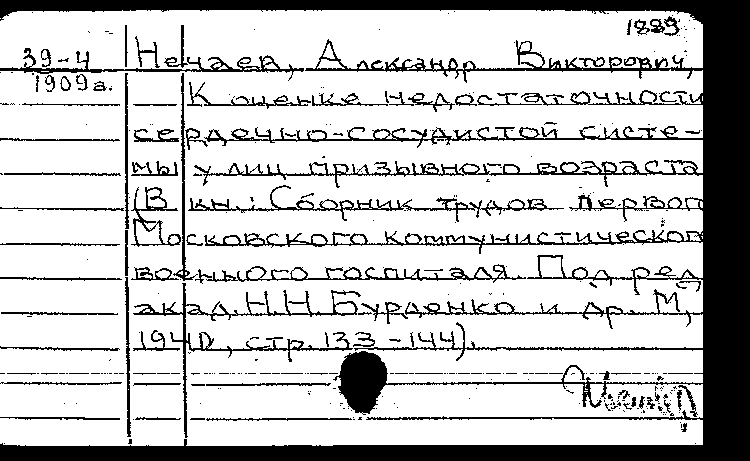 1889
39-4
1909а.
Нечаев, Александр Викторович,
К оценке недостаточности
сердечно-сосудистой систе-
мы у лиц призывного возраста
(В кн.: Сборник трудов первого
Московского коммунистического
военного госпиталя. Под ред.
акад. Н.Н. Бурденко и др. М,
1940, стр. 133-144).